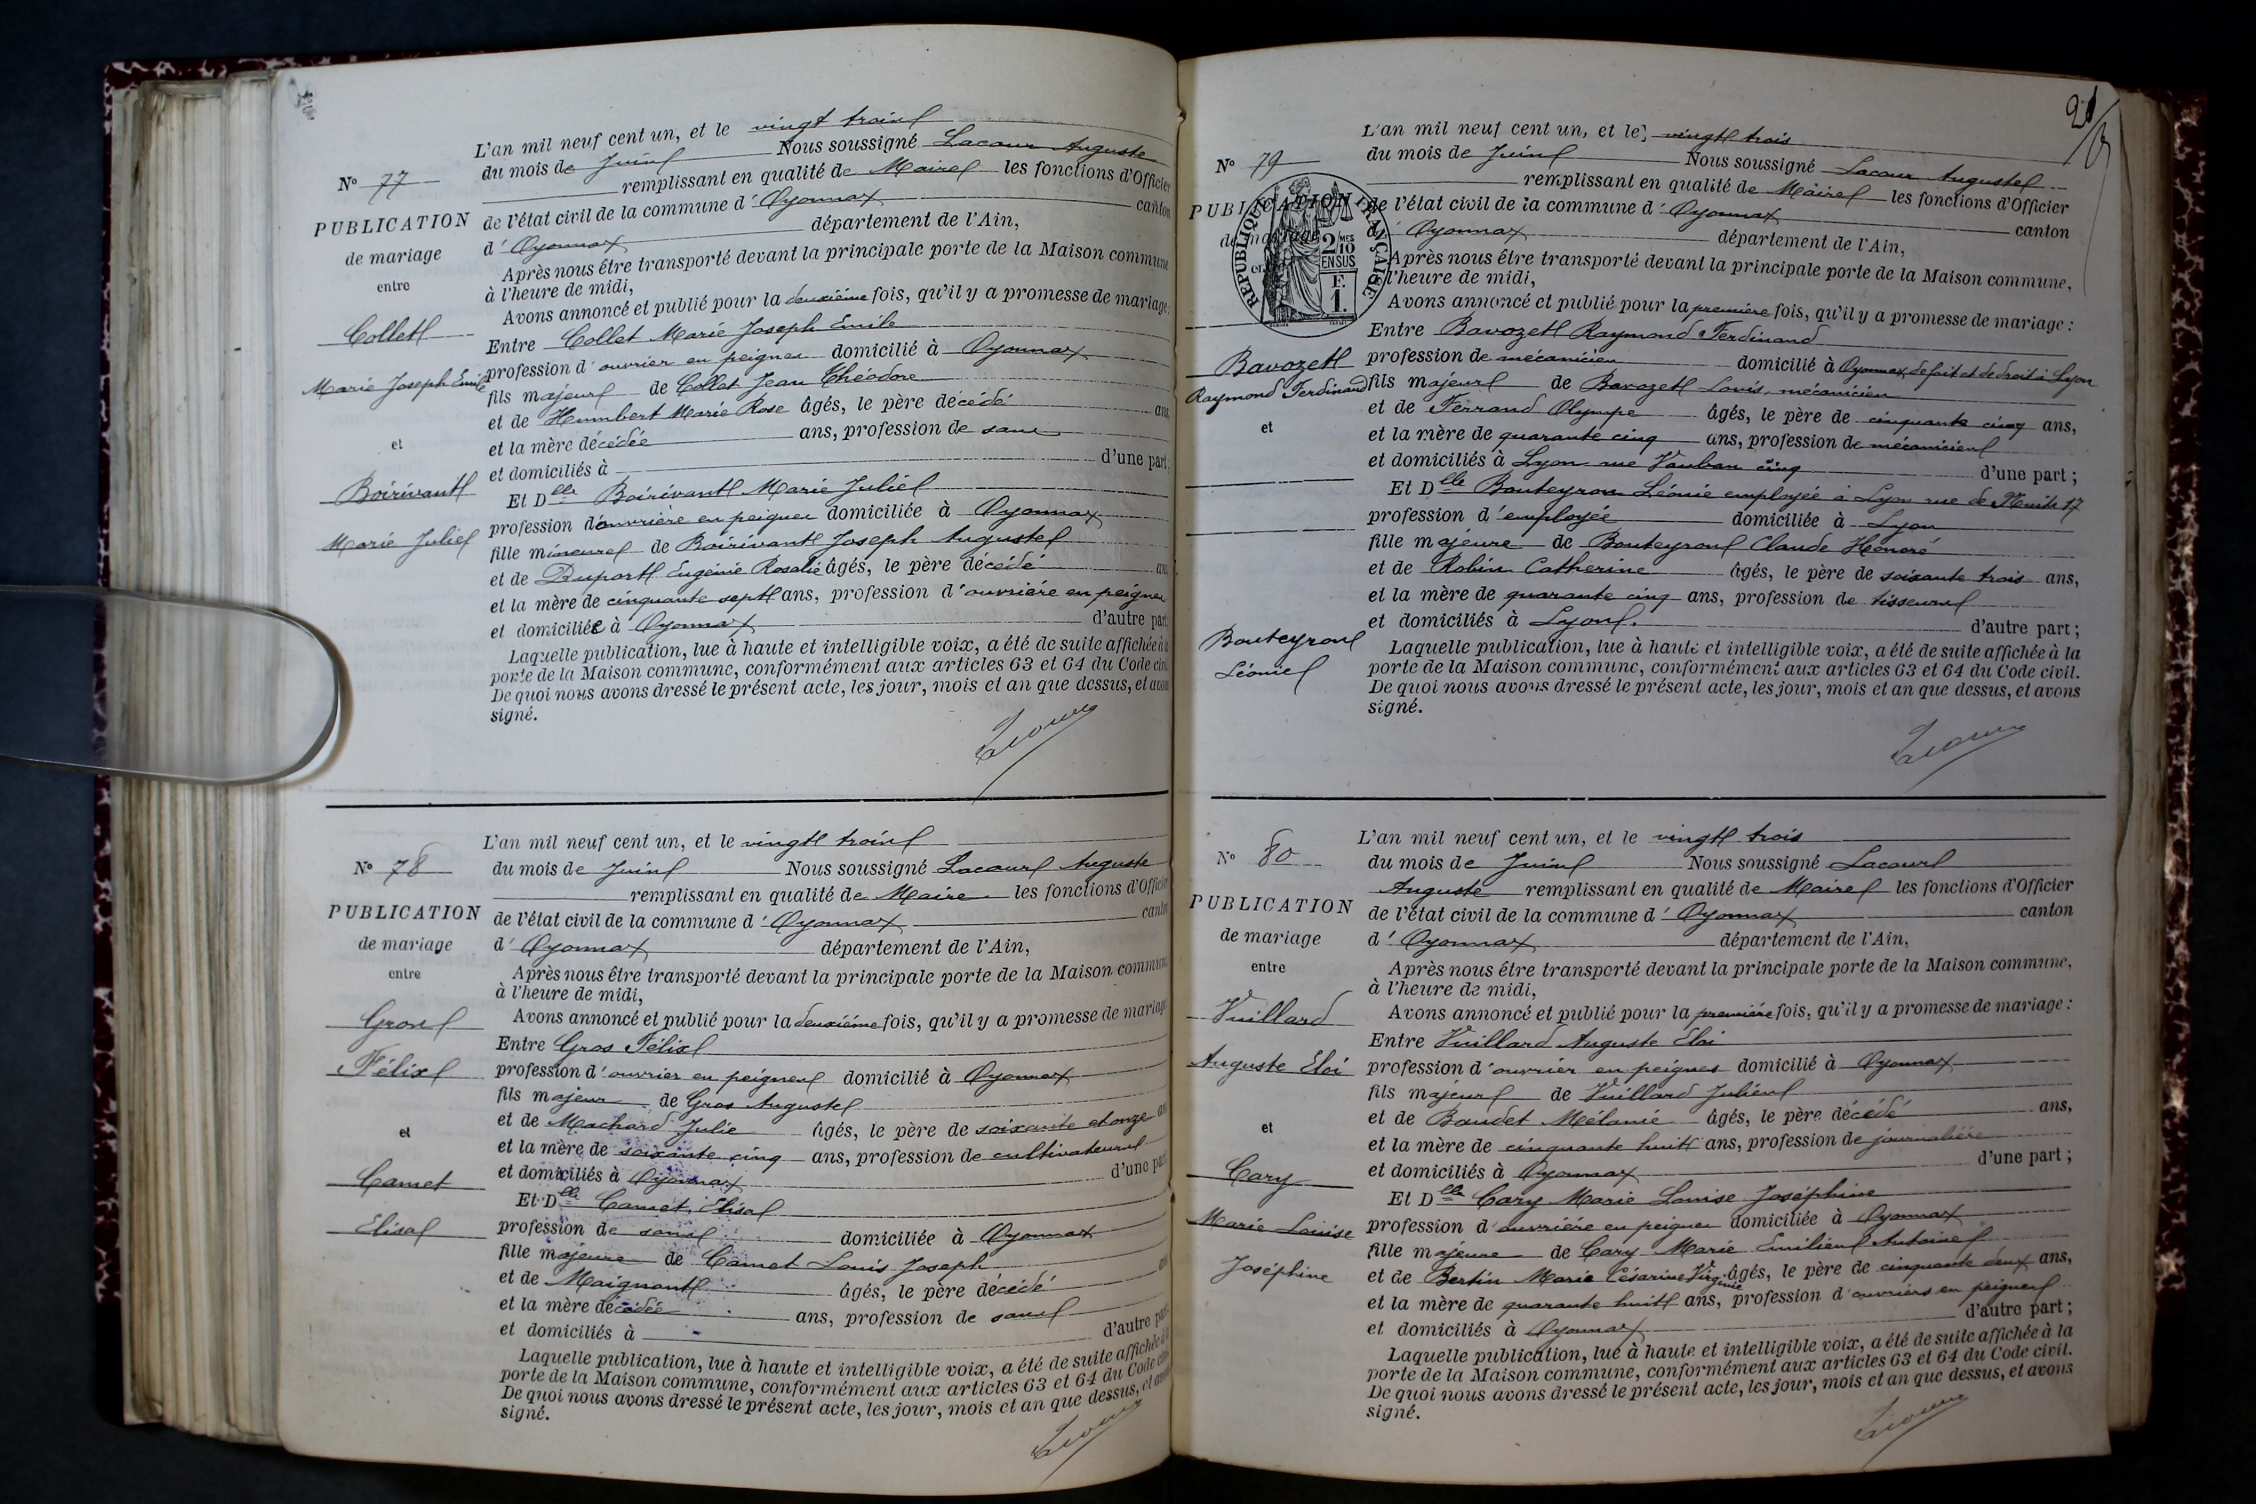 L'an mil neuf cent un, et le vingt trois
du mois de Juin Nous soussigné Lacour Auguste
N° 77
remplissant en qualité de Maire les fonctions d'Officier
PUBLICATION
de mariage
entre
Collet
Marie Joseph Emile
et
Boirivant
Marie Julie
de l'état civil de la commune d'Oyonnax canton
d'Oyonnax département de l'Ain,
Après nous être transporté devant la principale porte de la Maison commune
à l'heure de midi,
Avons annoncé et publié pour la deuxième fois, qu'il y a promesse de mariage:
Entre Collet Marie Joseph Emile
profession d'ouvrier en peignes domicilié à Oyonnax
fils majeur de Collet Jean Théodore
et de Humbert Marie Rose âgés, le père décédé ans,
et la mère décédée ans, profession de sans
et domiciliés à d'une part;
Et Dlle Boirivant Marie Julie
profession d'ouvrière en peignes domiciliée à Oyonnax
fille mineure de Boirivant Joseph Auguste
et de Duport Eugénie Rosalie âgés, le père décédé ans
et la mère de cinquante sept ans, profession d'ouvrière en peignes
et domiciliée à Oyonnax d'autre part
Laquelle publication, lue à haute et intelligible voix, a été de suite affichée à la
porte de la Maison commune, conformément aux articles 63 et 64 du Code civil.
De quoi nous avons dressé le présent acte, les jour, mois et an que dessus, et avons
signé.
Lacour
L'an mil neuf cent un, et le vingt trois
N° 78
du mois de Juin Nous soussigné Lacour Auguste
remplissant en qualité de Maire les fonctions d'Officier
PUBLICATION
de mariage
entre
Gros
Félix
et
Camet
Elisa
de l'état civil de la commune d'Oyonnax canton
d'Oyonnax département de l'Ain,
Après nous être transporté devant la principale porte de la Maison commune,
à l'heure de midi,
Avons annoncé et publié pour la deuxième fois, qu'il y a promesse de mariage
Entre Gros Félix
profession d'ouvrier en peignes domicilié à Oyonnax
fils majeur de Gros Auguste
et de Machard Julie âgés, le père de soixante et onze ans
et la mère de soixante cinq ans, profession de cultivateurs
et domiciliés à Oyonnax d'une part
Et Dlle Camet Elisa
profession de sans domiciliée à Oyonnax
fille majeure de Camet Louis Joseph
et de Maignant âgés, le père décédé ans
et la mère décédée ans, profession de sans
et domiciliés à d'autre part
Laquelle publication, lue à haute et intelligible voix, a été de suite affichée à la
porte de la Maison commune, conformément aux articles 63 et 64 du Code civil.
De quoi nous avons dressé le présent acte, les jour, mois et an que dessus, et avons
signé.
Lacour
L'an mil neuf cent un, et le vingt trois
du mois de Juin Nous soussigné Lacour Auguste
N° 79
remplissant en qualité de Maire les fonctions d'Officier
PUBLICATION
de mariage
et
RÉPUBLIQUE FRANÇAISE
2/10MES
EN SUS
F.
1.
Bavozet
Raymond Ferdinand
et
Bouteyron
Léonie
de l'état civil de la commune d'Oyonnax canton
d'Oyonnax département de l'Ain,
Après nous être transporté devant la principale porte de la Maison commune,
l'heure de midi,
Avons annoncé et publié pour la première fois, qu'il y a promesse de mariage:
Entre Bavozet Raymond Ferdinand
profession de mécanicien domicilié à Oyonnax de fait et de droit à Lyon
fils majeur de Bavozet Louis, mécanicien
et de Ferrand Olympe âgés, le père de cinquante cinq ans,
et la mère de quarante cinq ans, profession de mécanicien
et domiciliés à Lyon rue Vauban cinq d'une part;
Et Dlle Bouteyron Léonie employée à Lyon rue de 17
profession d'employée domiciliée à Lyon
fille majeure de Bouteyron Claude Honoré
et de Robin Catherine âgés, le père de soixante trois ans,
et la mère de quarante cinq ans, profession de tisseurs
et domiciliés à Lyon. d'autre part;
Laquelle publication, lue à haute et intelligible voix, a été de suite affichée à la
porte de la Maison commune, conformément aux articles 63 et 64 du Code civil.
De quoi nous avons dressé le présent acte, les jour, mois et an que dessus, et avons
signé.
Lacour
L'an mil neuf cent un, et le vingt trois
N° 80
du mois de Juin Nous soussigné Lacour
Auguste remplissant en qualité de Maire les fonctions d'Officier
PUBLICATION
de mariage
entre
Vuillard
Auguste Eloi
et
Cary
Marie Louise
Joséphine
de l'état civil de la commune d'Oyonnax canton
d'Oyonnax département de l'Ain,
Après nous être transporté devant la principale porte de la Maison commune,
à l'heure de midi,
Avons annoncé et publié pour la première fois, qu'il y a promesse de mariage:
Entre Vuillard Auguste Eloi
profession d'ouvrier en peignes domicilié à Oyonnax
fils majeur de Vuillard Julien
et de Baudet Mélanie âgés, le père décédé ans,
et la mère de cinquante huit ans, profession de journalière
et domiciliés à Oyonnax d'une part;
Et Dlle Cary Marie Louise Joséphine
profession d'ouvrière en peignes domiciliée à Oyonnax
fille majeure de Cary Marie Emilien Antoine
et de Bertin Marie Césarine Virginie âgés, le père de cinquante deux ans,
et la mère de quarante huit ans, profession d'ouvriers en peignes
et domiciliés à Oyonnax d'autre part;
Laquelle publication, lue à haute et intelligible voix, a été de suite affichée à la
porte de la Maison commune, conformément aux articles 63 et 64 du Code civil.
De quoi nous avons dressé le présent acte, les jour, mois et an que dessus, et avons
signé.
Lacour